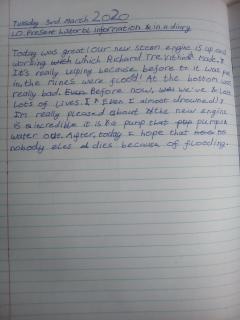 Tuesday 3rd March 2020
L.O. Present historic information in a diary
Today was great! Our new steam engine is up and
working which Richard Trevithick made. I
It's really helping because before it was
in the mines were flood! At the bottom was
really bad. Even Before now, we've lost
lots of lives. I Even I almost drowned!
I'm really pleased about the new engine
is incredible it is a pump that pumps
water out. After, today I hope that
nobody eles dies because of flooding.